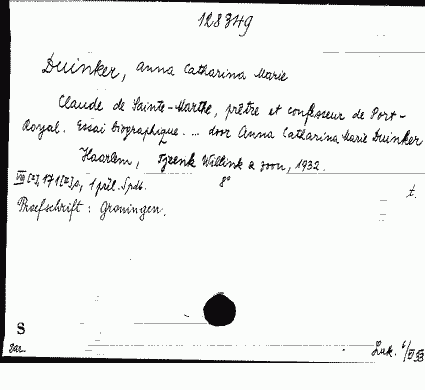 128349
Duinker, Anna Catharina Marie
Claude de Sainte-Marthe, prêtre et confesseur de Port-
Royal. Essai biographique. ... door Anna Catharina Marie Duinker
Haarlem, Tjeenk Willink & zoon, 1932.
VIII [I], 171 [II] s, 1 příl. 5 pds. 8°
t.
Proefschrift: Groningen.
S
var.